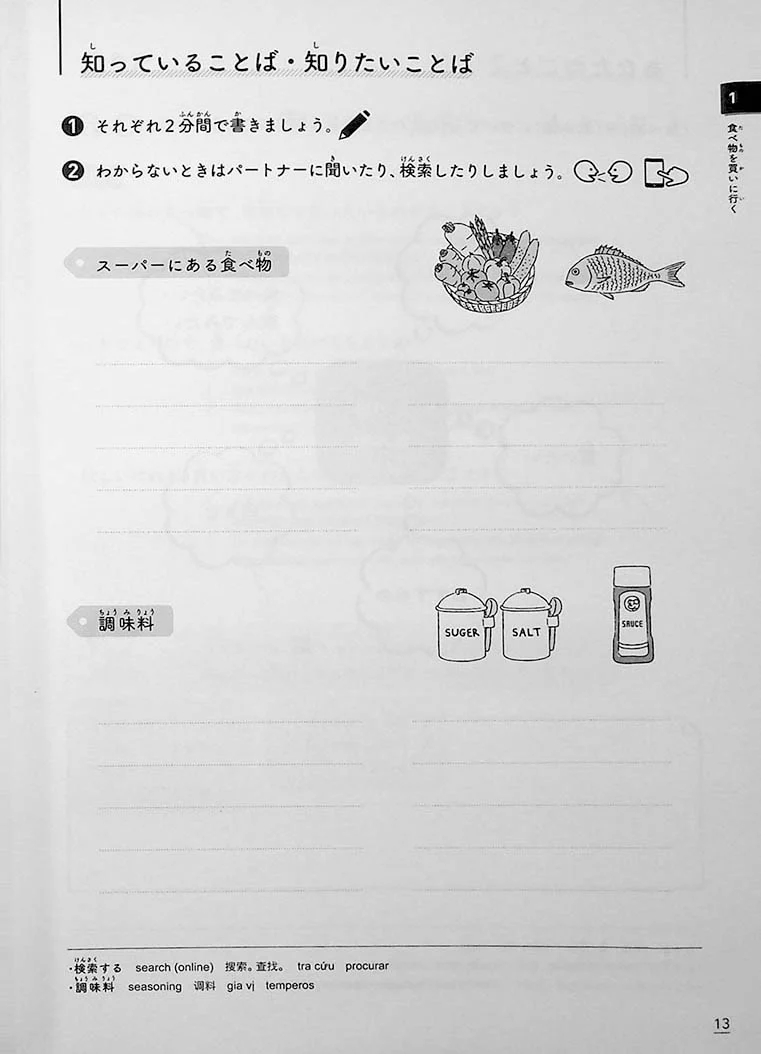 知っていることば・知りたいことば
❶ それぞれ2分間で書きましょう。
❷ わからないときはパートナーに聞いたり、検索したりしましょう。
1
食べ物を買いに行く
スーパーにある食べ物
調味料
SUGER
SALT
SAUCE
・検索する search (online) 搜索。查找。 tra cứu procurar
・調味料 seasoning 调料 gia vị temperos
13